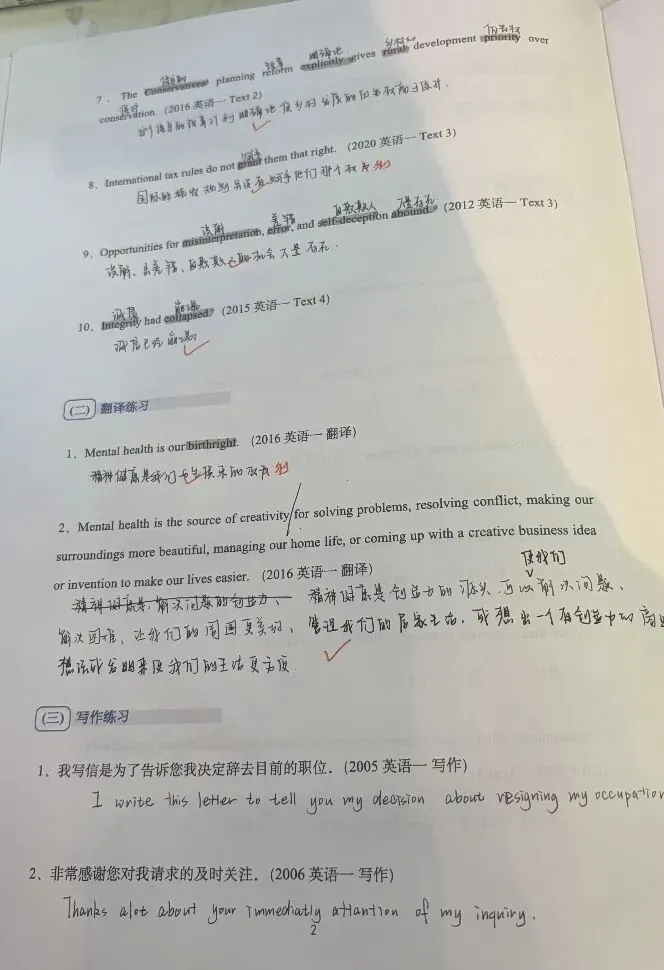 保守的 改革 明确地 乡村的 优先权
7、The Conservatives' planning reform explicitly gives rural development priority over
保护
conservation. (2016 英语一 Text 2)
赋予
8、International tax rules do not grant them that right. (2020 英语一 Text 3)
国际的税收规则并没有赋予他们那个权利
误解 差错 自欺欺人 大量存在
9、Opportunities for misinterpretation, error, and self-deception abound. (2012 英语一 Text 3)
误解、出差错、自欺欺人的机会大量存在.
诚信 崩塌
10、Integrity had collapsed. (2015 英语一 Text 4)
诚信已经崩塌
(二) 翻译练习
1、Mental health is our birthright. (2016 英语一 翻译)
精神健康是我们与生俱来的权利
2、Mental health is the source of creativity for solving problems, resolving conflict, making our
surroundings more beautiful, managing our home life, or coming up with a creative business idea
使我们
or invention to make our lives easier. (2016 英语一 翻译)
精神健康是创造力的源头,可以解决问题、
解决困难、让我们的周围更美好、管理我们的居家生活,或想出一个有创造力的商业
想法或发明来使我们的生活更方便
(三) 写作练习
1、我写信是为了告诉您我决定辞去目前的职位。(2005 英语一 写作)
I write this letter to tell you my decision about resigning my occupation
2、非常感谢您对我请求的及时关注。(2006 英语一 写作)
Thanks alot about your immediatly attantion of my inquiry.
2